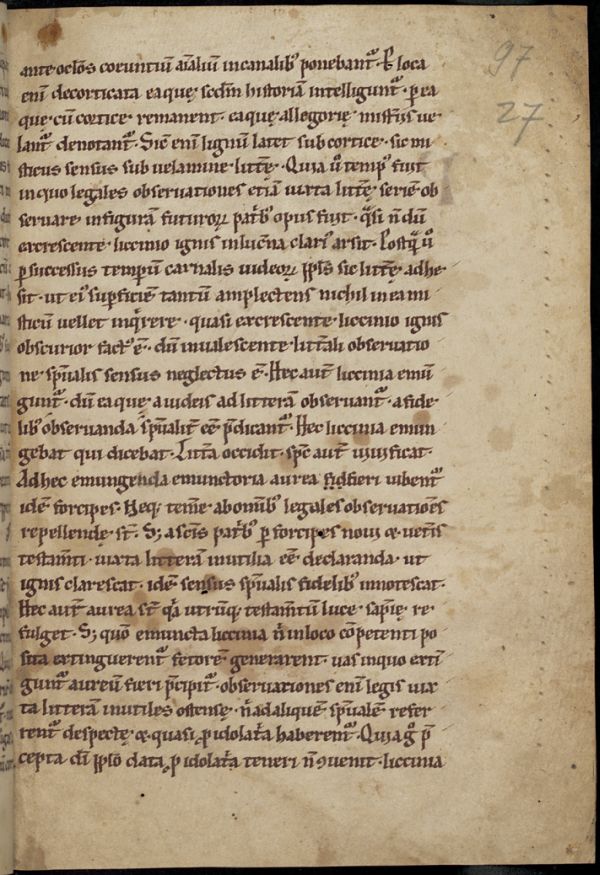 97
27
ante oclõs coeuntiũ aĩaliũ incanalib; ponebant᷑. Et loca
eni᷑ decorticata ea quę scd᷑m historiã intelligunt᷑. p̲ ea
quę cũ cortice remanent. ea quę allegorię misterijs ue
lant᷑ denotant᷑. Sic᷑ eni᷑ lignũ latet sub cortice. sic mi
sticus sensus sub uelamine litt᷑e. Quia u᷑o temp᷒ fuit
inquo legales obseruationes etiã iuxta litt᷑ę seriẽ ob
seruare infigurã futuroꝝ patrib; opus fuit. q̃si ñ dũ
excrescente liccinio ignis inluc᷑na clari᷒ arsit. Postq̃ u᷑o
ꝑ successus tempũ carnalis iudeoꝝ ipp᷑ls sic litt᷑ę adhe
sit. ut ei᷒ sup̲ficiẽ tantũ amplectens nichil in ea mi
sticũ uellet inq̃rere. quasi excrescente liccinio ignis
obscurior fact᷒ ẽ. dũ inualescente litt᷑ali obseruatio
ne sp᷑ualis sensus neglectus ẽ. Hec aut᷑ liccinia emũ
gunt᷑. dũ ea quę a iudeis ad litterã obseruant᷑. a fide
lib; obseruanda sp᷑ualit᷑ eẽ p̃dicant᷑. Hec liccinia emun
gebat qui dicebat. Litt᷑a occidit. sp᷑c aut᷑ uiuificat.
Ad hec emungenda emunctoria aurea fieri iubent᷑
idẽ forcipes. Neq; tem᷑e abomĩb; legales obseruatioẽs
repellendę st᷑. S; a sc᷑is patrib; ꝑ forcipes noui & uet᷑is
testam᷑ti. iuxta litterã inutilia eẽ declaranda. ut
ignis clarescat. idẽ sensus sp᷑ualis fidelib; innotescat.
Hec aut᷑ aurea st᷑ q̃a utriusq; testam᷑tũ luce sapię re
fulget. S; quõ emuncta liccinia ñ in loco cõpetenti po
sita extinguerent᷑ fetorẽ generarent. uas inquo exti
gunt᷑ aureũ fieri p̃cipit᷑. obseruationes eni᷑ legis iux
ta litterã inutiles ostensę. ñ ad aliquẽ sp᷑ualẽ refer
rent᷑ despectę & quasi ꝓ idolat᷑a haberent᷑. Quia g̊ p̃
cepta d᷑i ipp᷑lo data ꝓ idolat᷑a teneri ñ ꝯuenit. liccinia